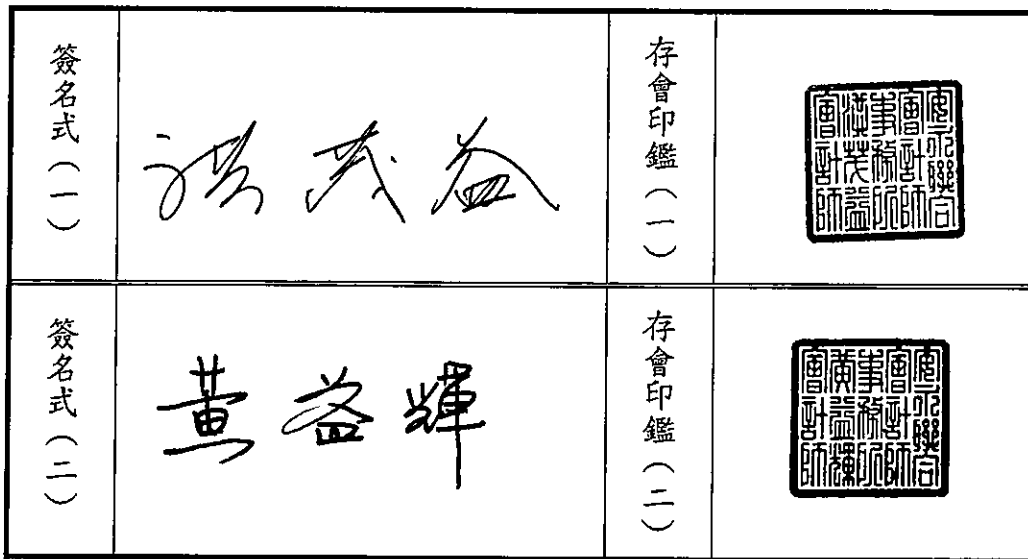 簽名式(一)
洪茂益
存會印鑑(一)
安永聯合
會計師
事務所
洪茂益
會計師
簽名式(二)
黃益輝
存會印鑑(二)
安永聯合
會計師
事務所
黃益輝
會計師